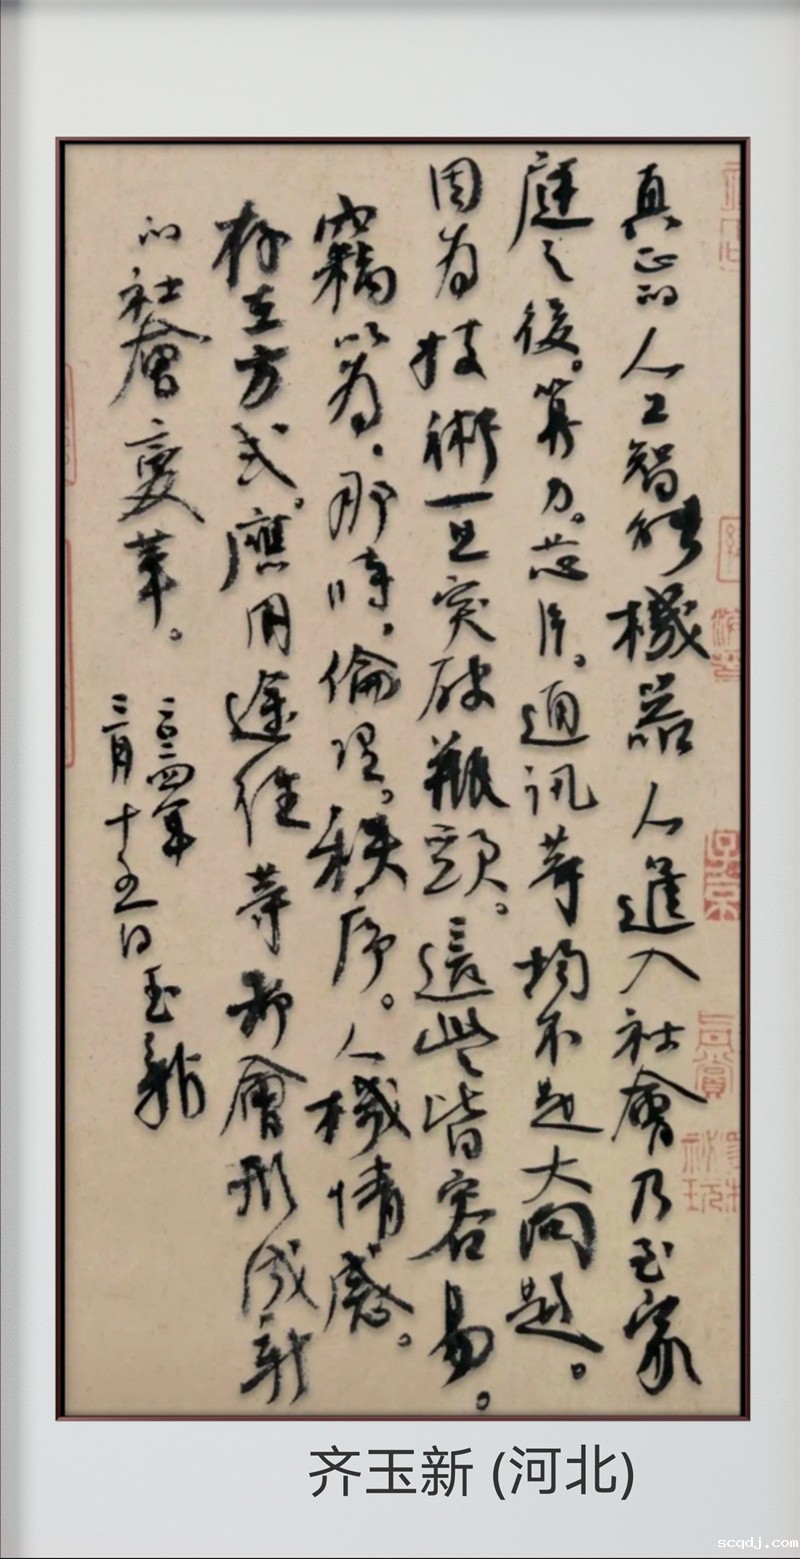 真正的人工智能機器人進入社會乃至家
庭之後。算力。芯片。通訊等均不是大问题。
因为技術一旦突破瓶頸。這些皆容易。
竊以为。那時。倫理。秩序。人機情感。
存在方式。應用途徑等都會形成新
的社會變革。
二〇二四年
三月十五日玉新
齐玉新 (河北)
scqdj.com